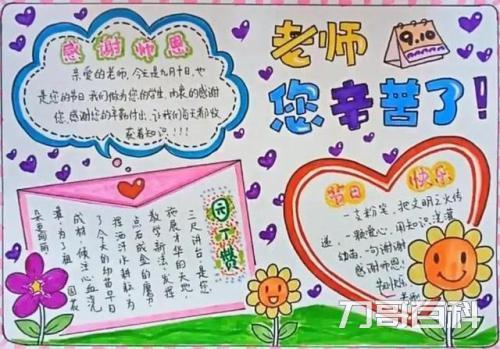 感谢师恩
亲爱的老师,今天是九月十日,也
是您的节日.我们做为您的学生,由衷的感谢
您,感谢您的辛勤付出,让我们每天都收
获着知识!!!
老师
9.10
您辛苦了!
园丁赞
三尺讲台,是您
施展才华的天地
教学新法,发挥
点石成金的魔力
挥洒汗水耕耘,为
了今天的幼苗早日
成材,倾注心血浇
灌,为了祖国花
朵
节日 快乐
一支粉笔,把文明之火传
递,一颗爱心,用知识浇灌
幼苗,一句谢谢
感谢师恩,
节日快乐
老师
刀哥百科